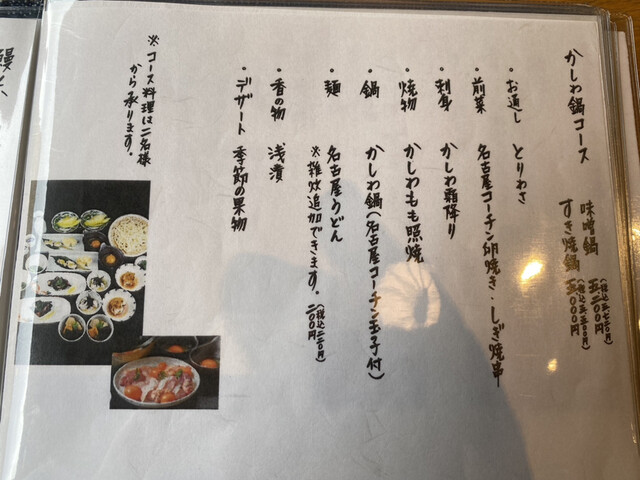 かしわ鍋コース
味噌鍋 五二〇〇円(税込五七二〇円)
すき焼鍋 五〇〇〇円(税込五五〇〇円)
・お通し とりわさ
・前菜 名古屋コーチン卵焼き・しぎ焼串
・刺身 かしわ霜降り
・焼物 かしわもも照焼
・鍋 かしわ鍋(名古屋コーチン玉子付)
・麺 名古屋うどん
※雑炊追加できます。二〇〇円(税込二二〇円)
・香の物 浅漬
・デザート 季節の果物
※コース料理は二名様
から承ります。